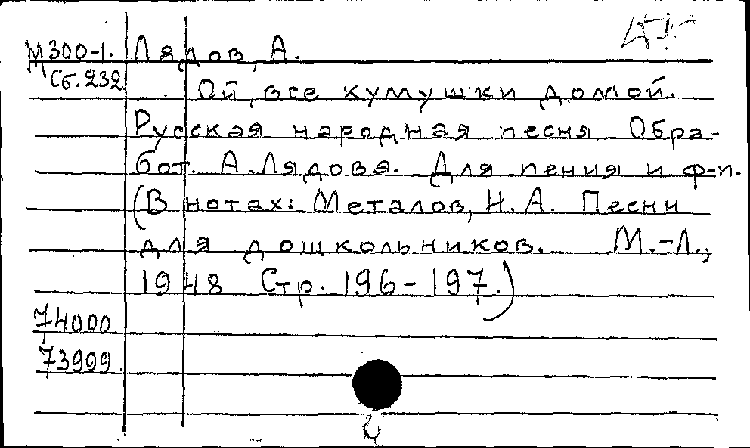 М300-1. Лядов, А.
Сб. 232
Ой, все кумушки домой.
Русская народная песня Обра-
бот. А. Лядова. Для пения и ф-п.
(В нотах: Металов, Н.А. Песни
для дошкольников. М.-Л.,
1948 Стр. 196-197.)
74000
73909.